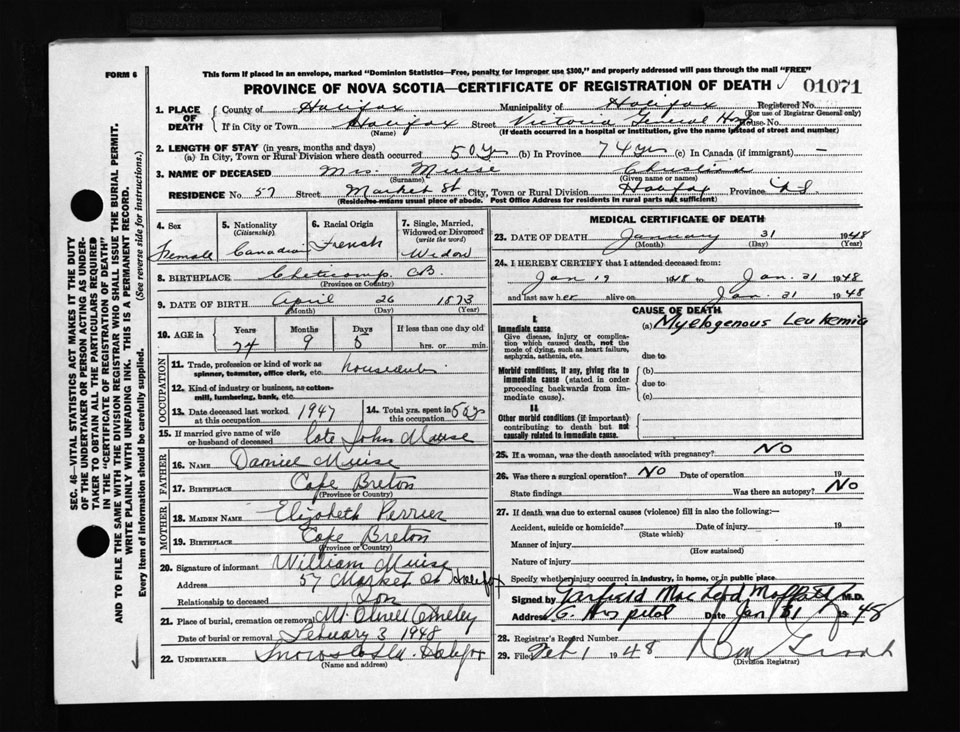 FORM 6
This form if placed in an envelope, marked "Dominion Statistics—Free, penalty for improper use $300," and properly addressed will pass through the mail "FREE"
PROVINCE OF NOVA SCOTIA—CERTIFICATE OF REGISTRATION OF DEATH 01071
1. PLACE OF DEATH County of Halifax Municipality of Halifax Registered No.
(For use of Registrar General only)
If in City or Town Halifax Street Victoria General Hosp House No.
(Name) (If death occurred in a hospital or institution, give the name instead of street and number)
2. LENGTH OF STAY (in years, months and days)
(a) In City, Town or Rural Division where death occurred 50 yrs (b) In Province 74 yrs (c) In Canada (if immigrant) —
3. NAME OF DECEASED Mrs. Muise Christina
(Surname) (Given name or names)
RESIDENCE No 57 Street Market St City, Town or Rural Division Halifax Province N.S
(Residence means usual place of abode. Post Office Address for residents in rural parts not sufficient)
4. Sex Female
5. Nationality (Citizenship) Canadian
6. Racial Origin French
7. Single, Married, Widowed or Divorced (write the word) Widow
8. BIRTHPLACE Cheticamp. CB.
(Province or Country)
9. DATE OF BIRTH April 26 1873
(Month) (Day) (Year)
10. AGE in Years 74 Months 9 Days 5 If less than one day old hrs. or min.
OCCUPATION
11. Trade, profession or kind of work as spinner, teamster, office clerk, etc.
12. Kind of industry or business, as cotton-mill, lumbering, bank, etc.
13. Date deceased last worked at this occupation 1947
14. Total yrs. spent in this occupation 50 yrs
15. If married give name of wife or husband of deceased Late John Muise
FATHER
16. NAME Daniel Muise
17. BIRTHPLACE Cape Breton
(Province or Country)
MOTHER
18. MAIDEN NAME Elizabeth Perrier
19. BIRTHPLACE Cape Breton
(Province or Country)
20. Signature of informant William Muise
Address 57 Market St Halifax
Relationship to deceased Son
21. Place of burial, cremation or removal Mt Olivet Cemetery
Date of burial or removal February 3 1948
22. UNDERTAKER Snows Co Ltd. Halifax
(Name and address)
MEDICAL CERTIFICATE OF DEATH
23. DATE OF DEATH January 31 1948
(Month) (Day) (Year)
24. I HEREBY CERTIFY that I attended deceased from:
Jan 19 1948 to Jan. 31 1948
and last saw her alive on Jan. 31 1948
CAUSE OF DEATH
I.
Immediate cause. (a) Myelogenous Leukemia
Give disease, injury or complication which caused death, not the mode of dying, such as heart failure, asphyxia, asthenia, etc.
due to
Morbid conditions, if any, giving rise to immediate cause (stated in order proceeding backwards from immediate cause).
(b)
due to
(c)
II.
Other morbid conditions (if important) contributing to death but not causally related to immediate cause.
25. If a woman, was the death associated with pregnancy? No
26. Was there a surgical operation? No Date of operation 19
State findings Was there an autopsy? No
27. If death was due to external causes (violence) fill in also the following:—
Accident, suicide or homicide? Date of injury 19
(State which)
Manner of injury
(How sustained)
Nature of injury
Specify whether injury occurred in industry, in home, or in public place
Signed by Garfield MacLeod Moffatt M.D.
Address V.G. Hospital Date Jan 31 1948
28. Registrar's Record Number
29. Filed Feb 1 1948
(Division Registrar)
SEC. 46—VITAL STATISTICS ACT MAKES IT THE DUTY
OF THE UNDERTAKER OR PERSON ACTING AS UNDER-
TAKER TO OBTAIN ALL THE PARTICULARS REQUIRED
IN THE "CERTIFICATE OF REGISTRATION OF DEATH"
AND TO FILE THE SAME WITH THE DIVISION REGISTRAR WHO SHALL ISSUE THE BURIAL PERMIT.
WRITE PLAINLY WITH UNFADING INK. THIS IS A PERMANENT RECORD.
Every item of information should be carefully supplied. (See reverse side for instructions.)